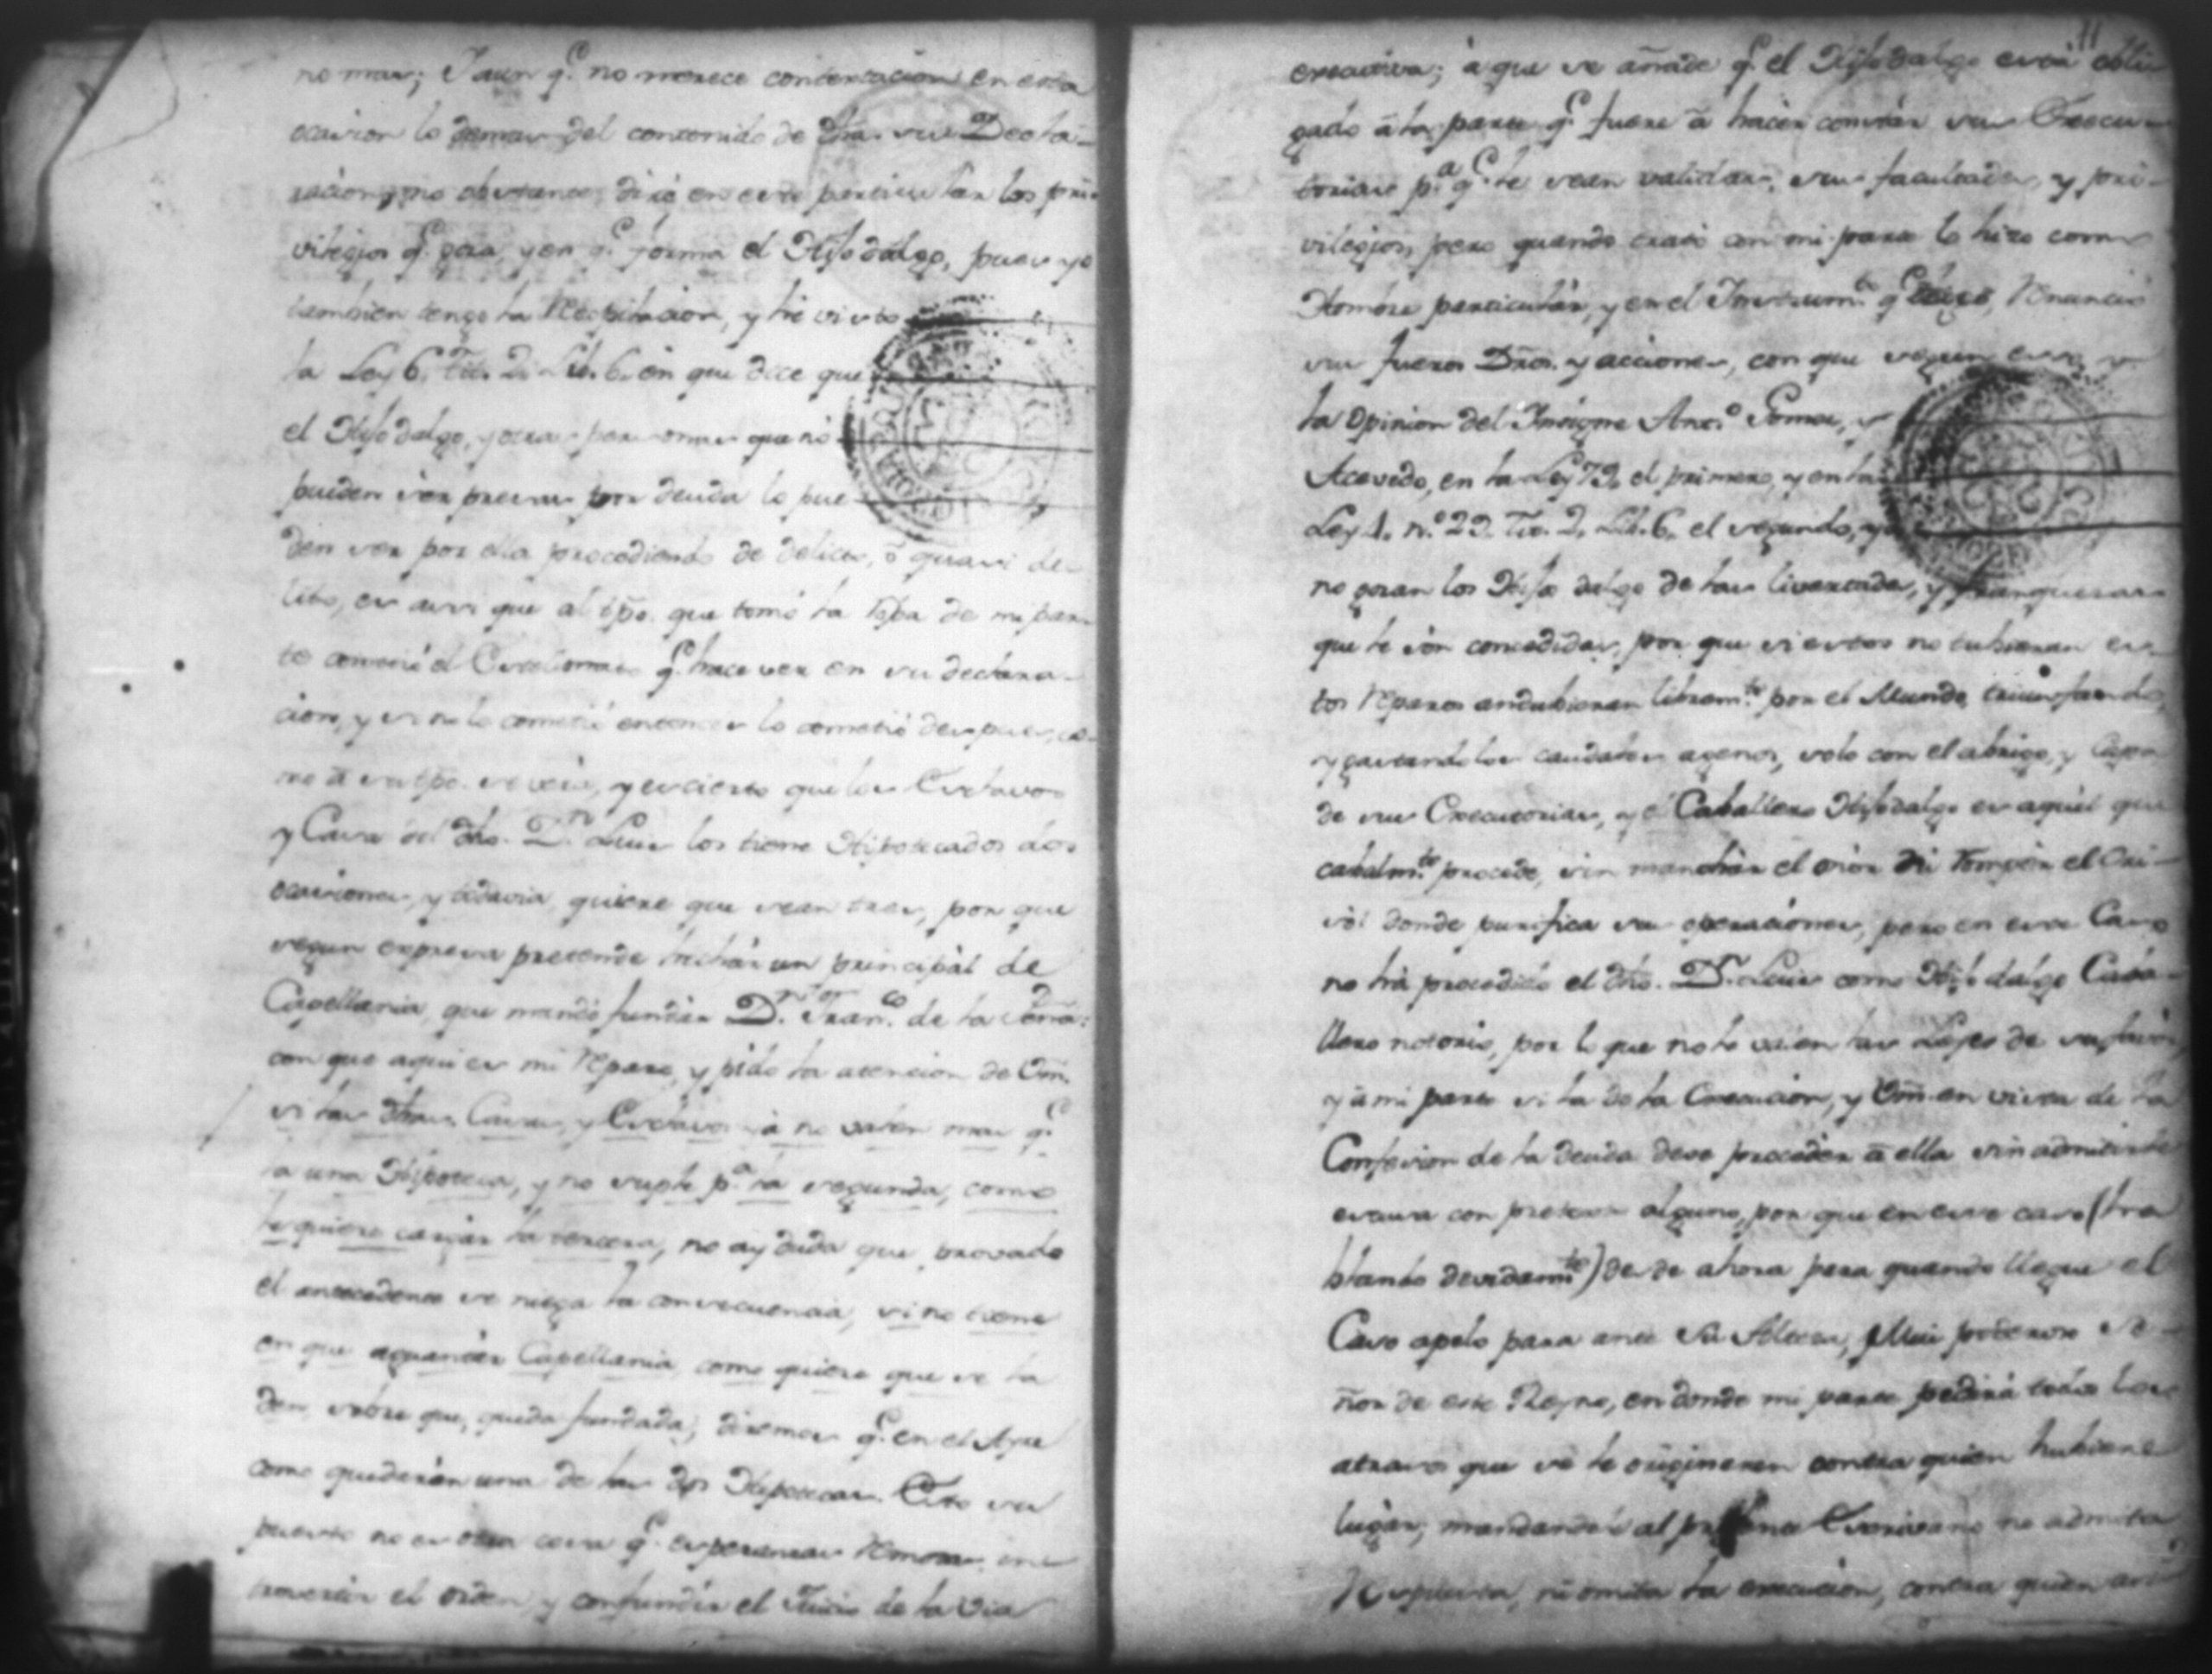 no mas; Y aun q.e no merece contextacion en esta
ocasion lo demas del contenido de dha. su Decla-
racion, no obstante diré en este particular los pri-
vilegios q.e goza, y en q.e forma el Hijodalgo, pues yo
tambien tengo la Recopilacion, y hé visto
la Ley 6. Tit. 2. Lib. 6. en que dice que
el Hijodalgo, y otras personas que nó
pueden sér presas por deuda lo pue
den ser por ella procediendo de delito, ó quasi de-
lito, es assi que al tpo. que tomó la Ropa de mi par-
te cometió el Estelionato q.e hace ver en su declara-
cion, y si no lo cometió entonces lo cometió despues, co-
mo á su tpo. se verá, y es cierto que los Esclavos
y Casa del dho. D.n Luis los tiene Hipotecados dos
ocasiones, y todavia quiere que sean tres, por que
segun expresa pretende hechár un principál de
Capellania, que mandó fundár D.n Fran.co de la
con que aqui es mi Reparo, y pido la atencion de Vm.
si las dhas. Casas, y Esclavos yá no valen mas q.e
la una Hipoteca, y no suple p.a la segunda, como
le quiere cargár la tercera, no ay duda que provado
el antecedente se niega la consecuencia, si no tiene
en que aguantár Capellania, como quiere que se la
den, sobre que queda fundada; diremos q.e en el Ayre
como quedarán una de las dos Hipotecas. Esto su
puesto no es otra cosa q.e esperanzas Remotas, in
tervertir el orden, y confundir el Juicio de la Via
executiva; á que se añade q.e el Hijodalgo está obli
gado á la parte q.e fuere á hacér constár sus Execu-
torias p.a q.e le sean validas, sus facultades, y pri-
vilegios, pero quando trató con mi parte lo hizo como
Hombre particulár, y en el Instrum.to q.e Renunció
sus fueros Dros. y acciones, con que segun esto, y
la Opinion del Insigne Ant.o Gomez, y
Acevedo, en la Ley 79. el primero, y en la
Ley 1. n.o 29. Tit. 2. Lib. 6. el segundo, ya
no gozan los Hijos dalgo de las livertades, y franquezas
que le són concedidas, por que si estos no tubieran es-
tos Reparos andubieran libram.te por el Mundo, triunfando,
y gastando los caudales agenos, solo con el abrigo, y Capa
de sus Executorias, y el Caballero Hijodalgo es aquel que
cabalm.te procede, sin manchár el ni Rompér el Cri-
sól donde purifica sus operaciones, pero en este Caso
no há procedido el dho. D.n Luis como Hijo dalgo Caba-
llero notorio, por lo que no le valen las Leyes de su favor,
y á mi parte si la de la Execucion, y Vm. en vista de la
Confesion de la deuda deve procedér á ella sin admitirle
escusa con pretexto alguno, por que en este caso (ha
blando devidam.te) desde ahora para quando llegue el
Caso apelo para ante Su Alteza, Mui poderoso Se-
ñor de este Reyno, en donde mi parte pedirá todos los
atrasos que se le originaren contra quien hubiere
lugár; mandandole al presente Escrivano no admita
Respuesta, ni omita la execucion, contra quien assi